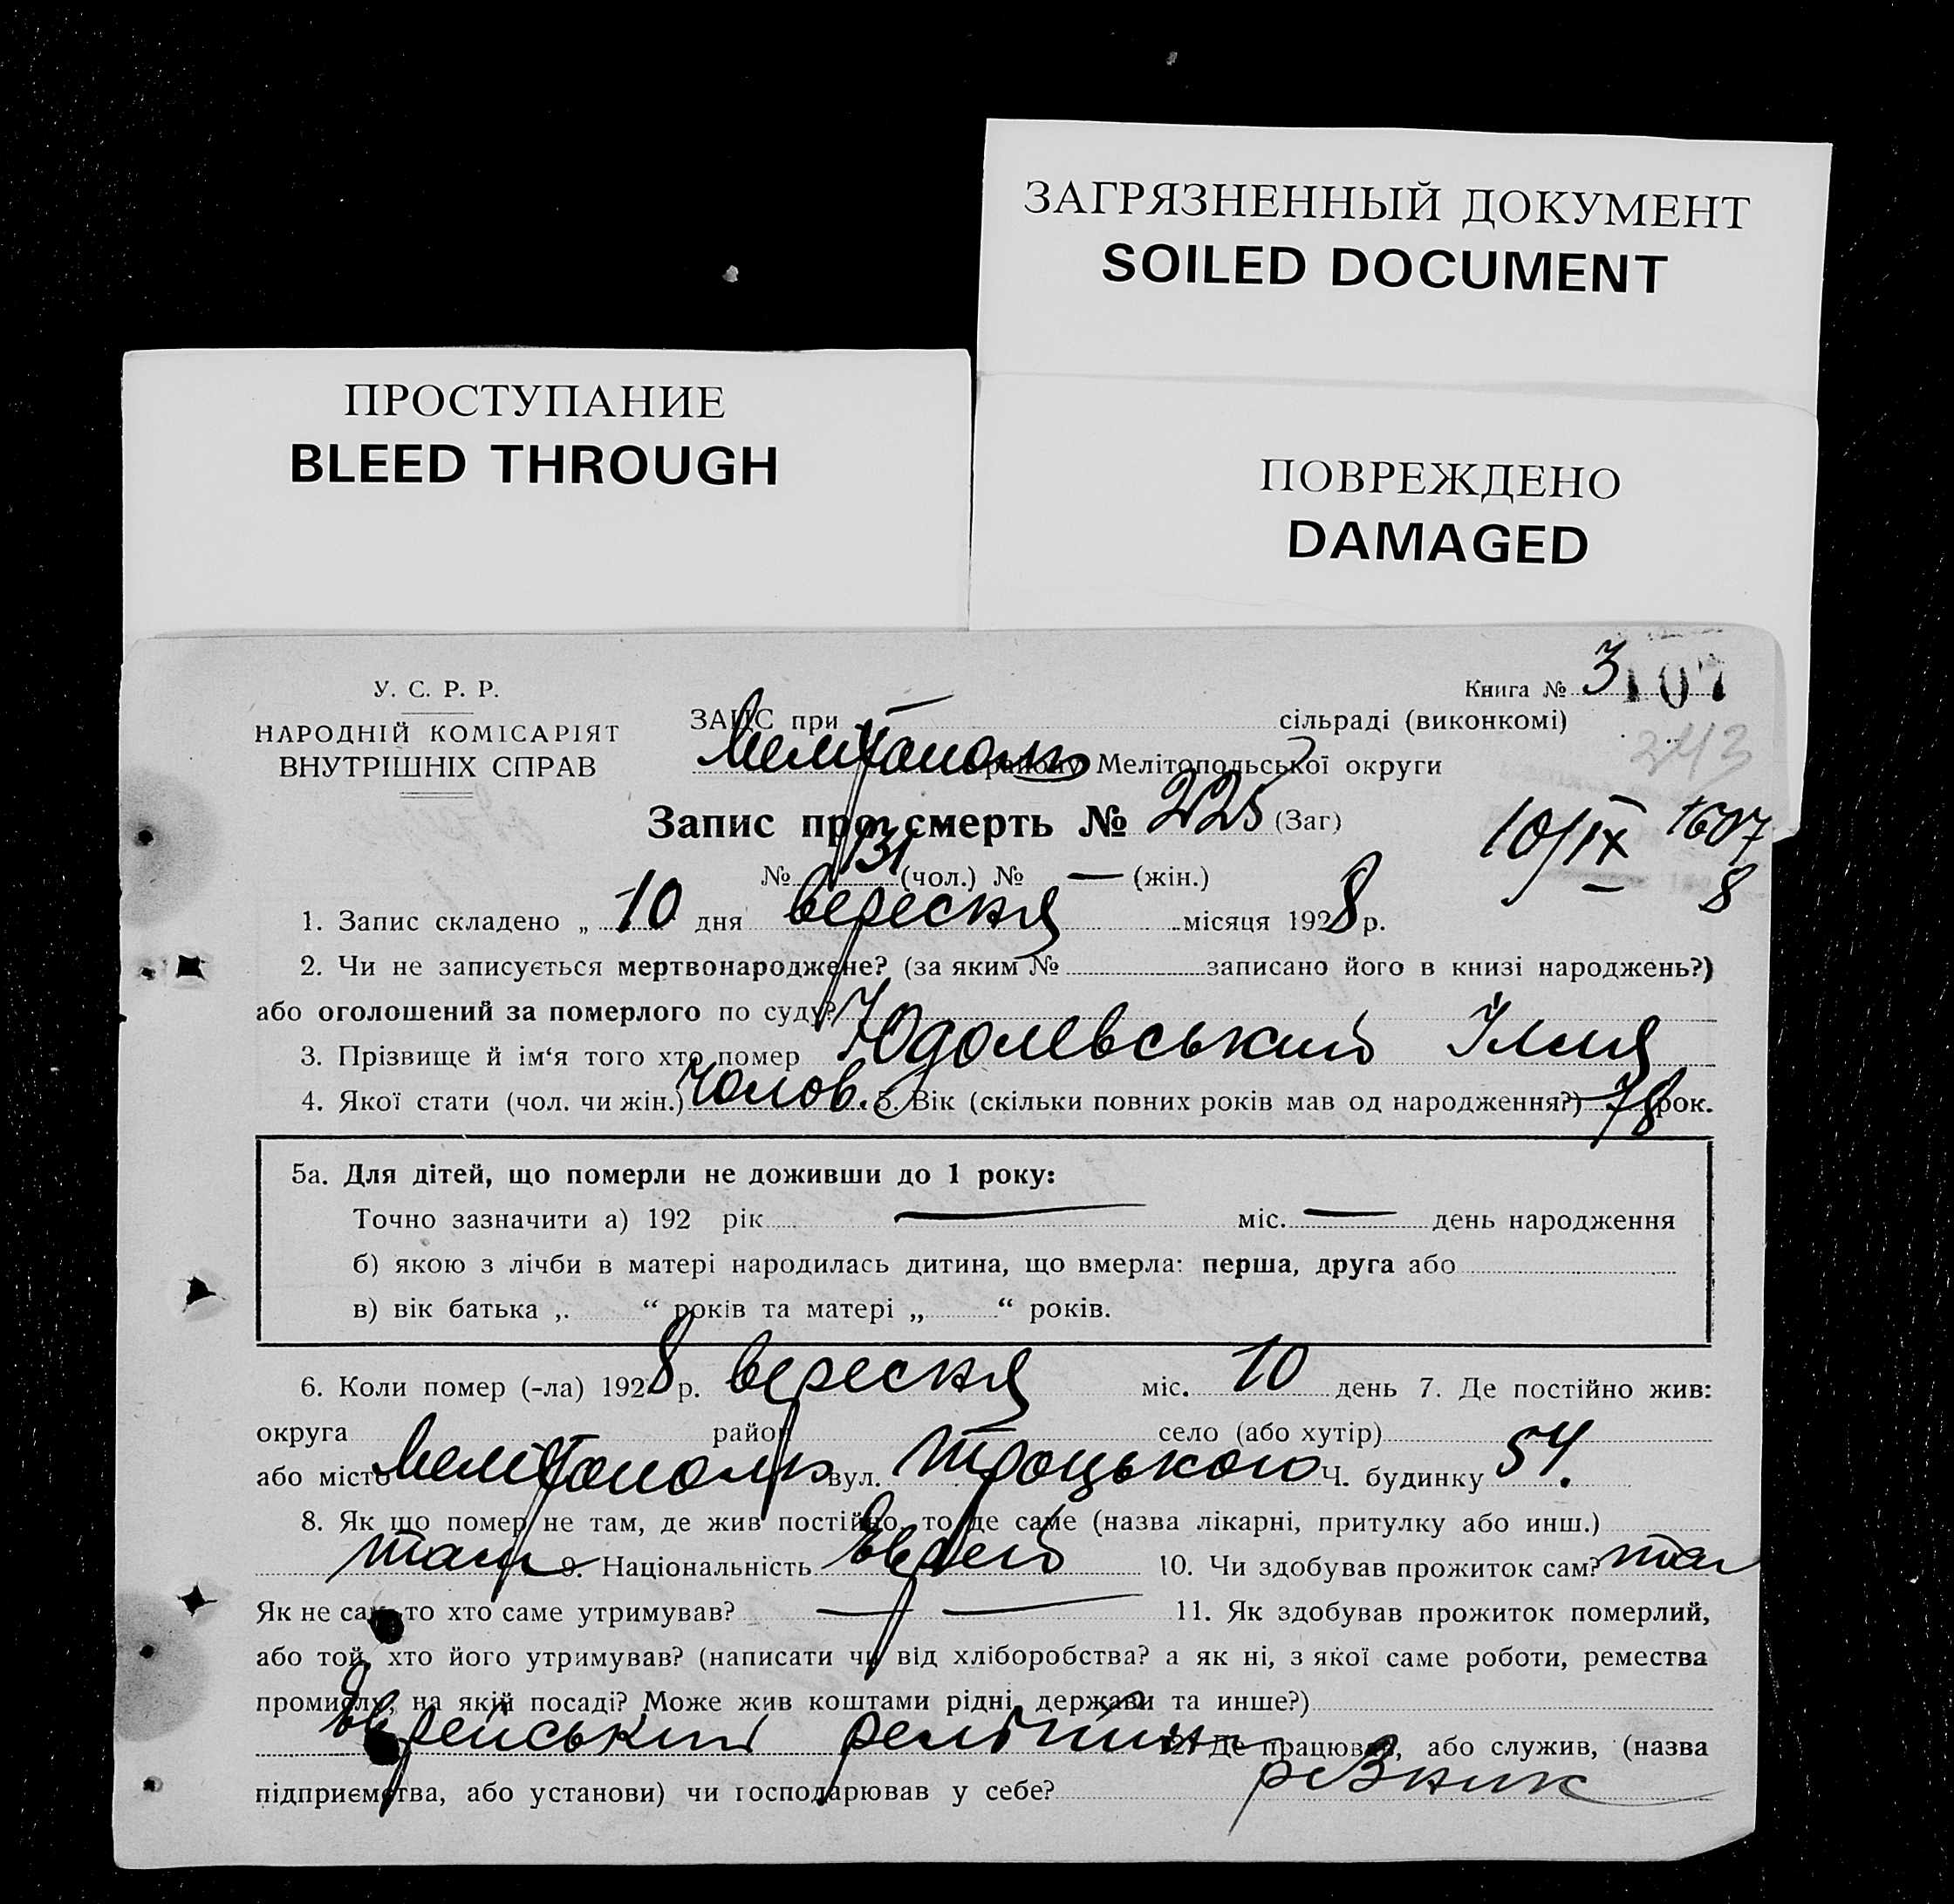 ЗАГРЯЗНЕННЫЙ ДОКУМЕНТ
SOILED DOCUMENT
ПРОСТУПАНИЕ
BLEED THROUGH
ПОВРЕЖДЕНО
DAMAGED
У. С. Р. Р.
НАРОДНІЙ КОМІСАРІЯТ
ВНУТРІШНІХ СПРАВ
Книга № 3 107
ЗАЦС при сільраді (виконкомі)
243
Мелітополь району Мелітопольської округи
Запис про смерть № 225 (Заг)
10/IX 1607
8
№ 131 (чол.) № — (жін.)
1. Запис складено „ 10 дня вересня місяця 1928 р.
2. Чи не записується мертвонароджене? (за яким № записано його в книзі народжень?)
або оголошений за померлого по суду?
3. Прізвище й ім‘я того хто помер Юдолевський Ілля
4. Якої стати (чол. чи жін.) чолов. 5. Вік (скільки повних років мав од народження?) 78 рок.
5а. Для дітей, що померли не доживши до 1 року:
Точно зазначити а) 192 рік — міс. — день народження
б) якою з лічби в матері народилась дитина, що вмерла: перша, друга або
в) вік батька „ “ років та матері „ “ років.
6. Коли помер (-ла) 1928 р. вересня міс. 10 день 7. Де постійно жив:
округа район село (або хутір)
або місто Мелітополь вул. Троцького Ч. будинку 54.
8. Як що помер не там, де жив постійно, то де саме (назва лікарні, притулку або инш.)
там 9. Національність Еврей 10. Чи здобував прожиток сам?
Як не сам то хто саме утримував? — — 11. Як здобував прожиток померлий,
або той, хто його утримував? (написати чи від хліборобства? а як ні, з якої саме роботи, ремества
промислу, на якій посаді? Може жив коштами рідні, держави та инше?)
Еврейський 12. Де працював, або служив, (назва
підприємства, або установи) чи господарював у себе? резник